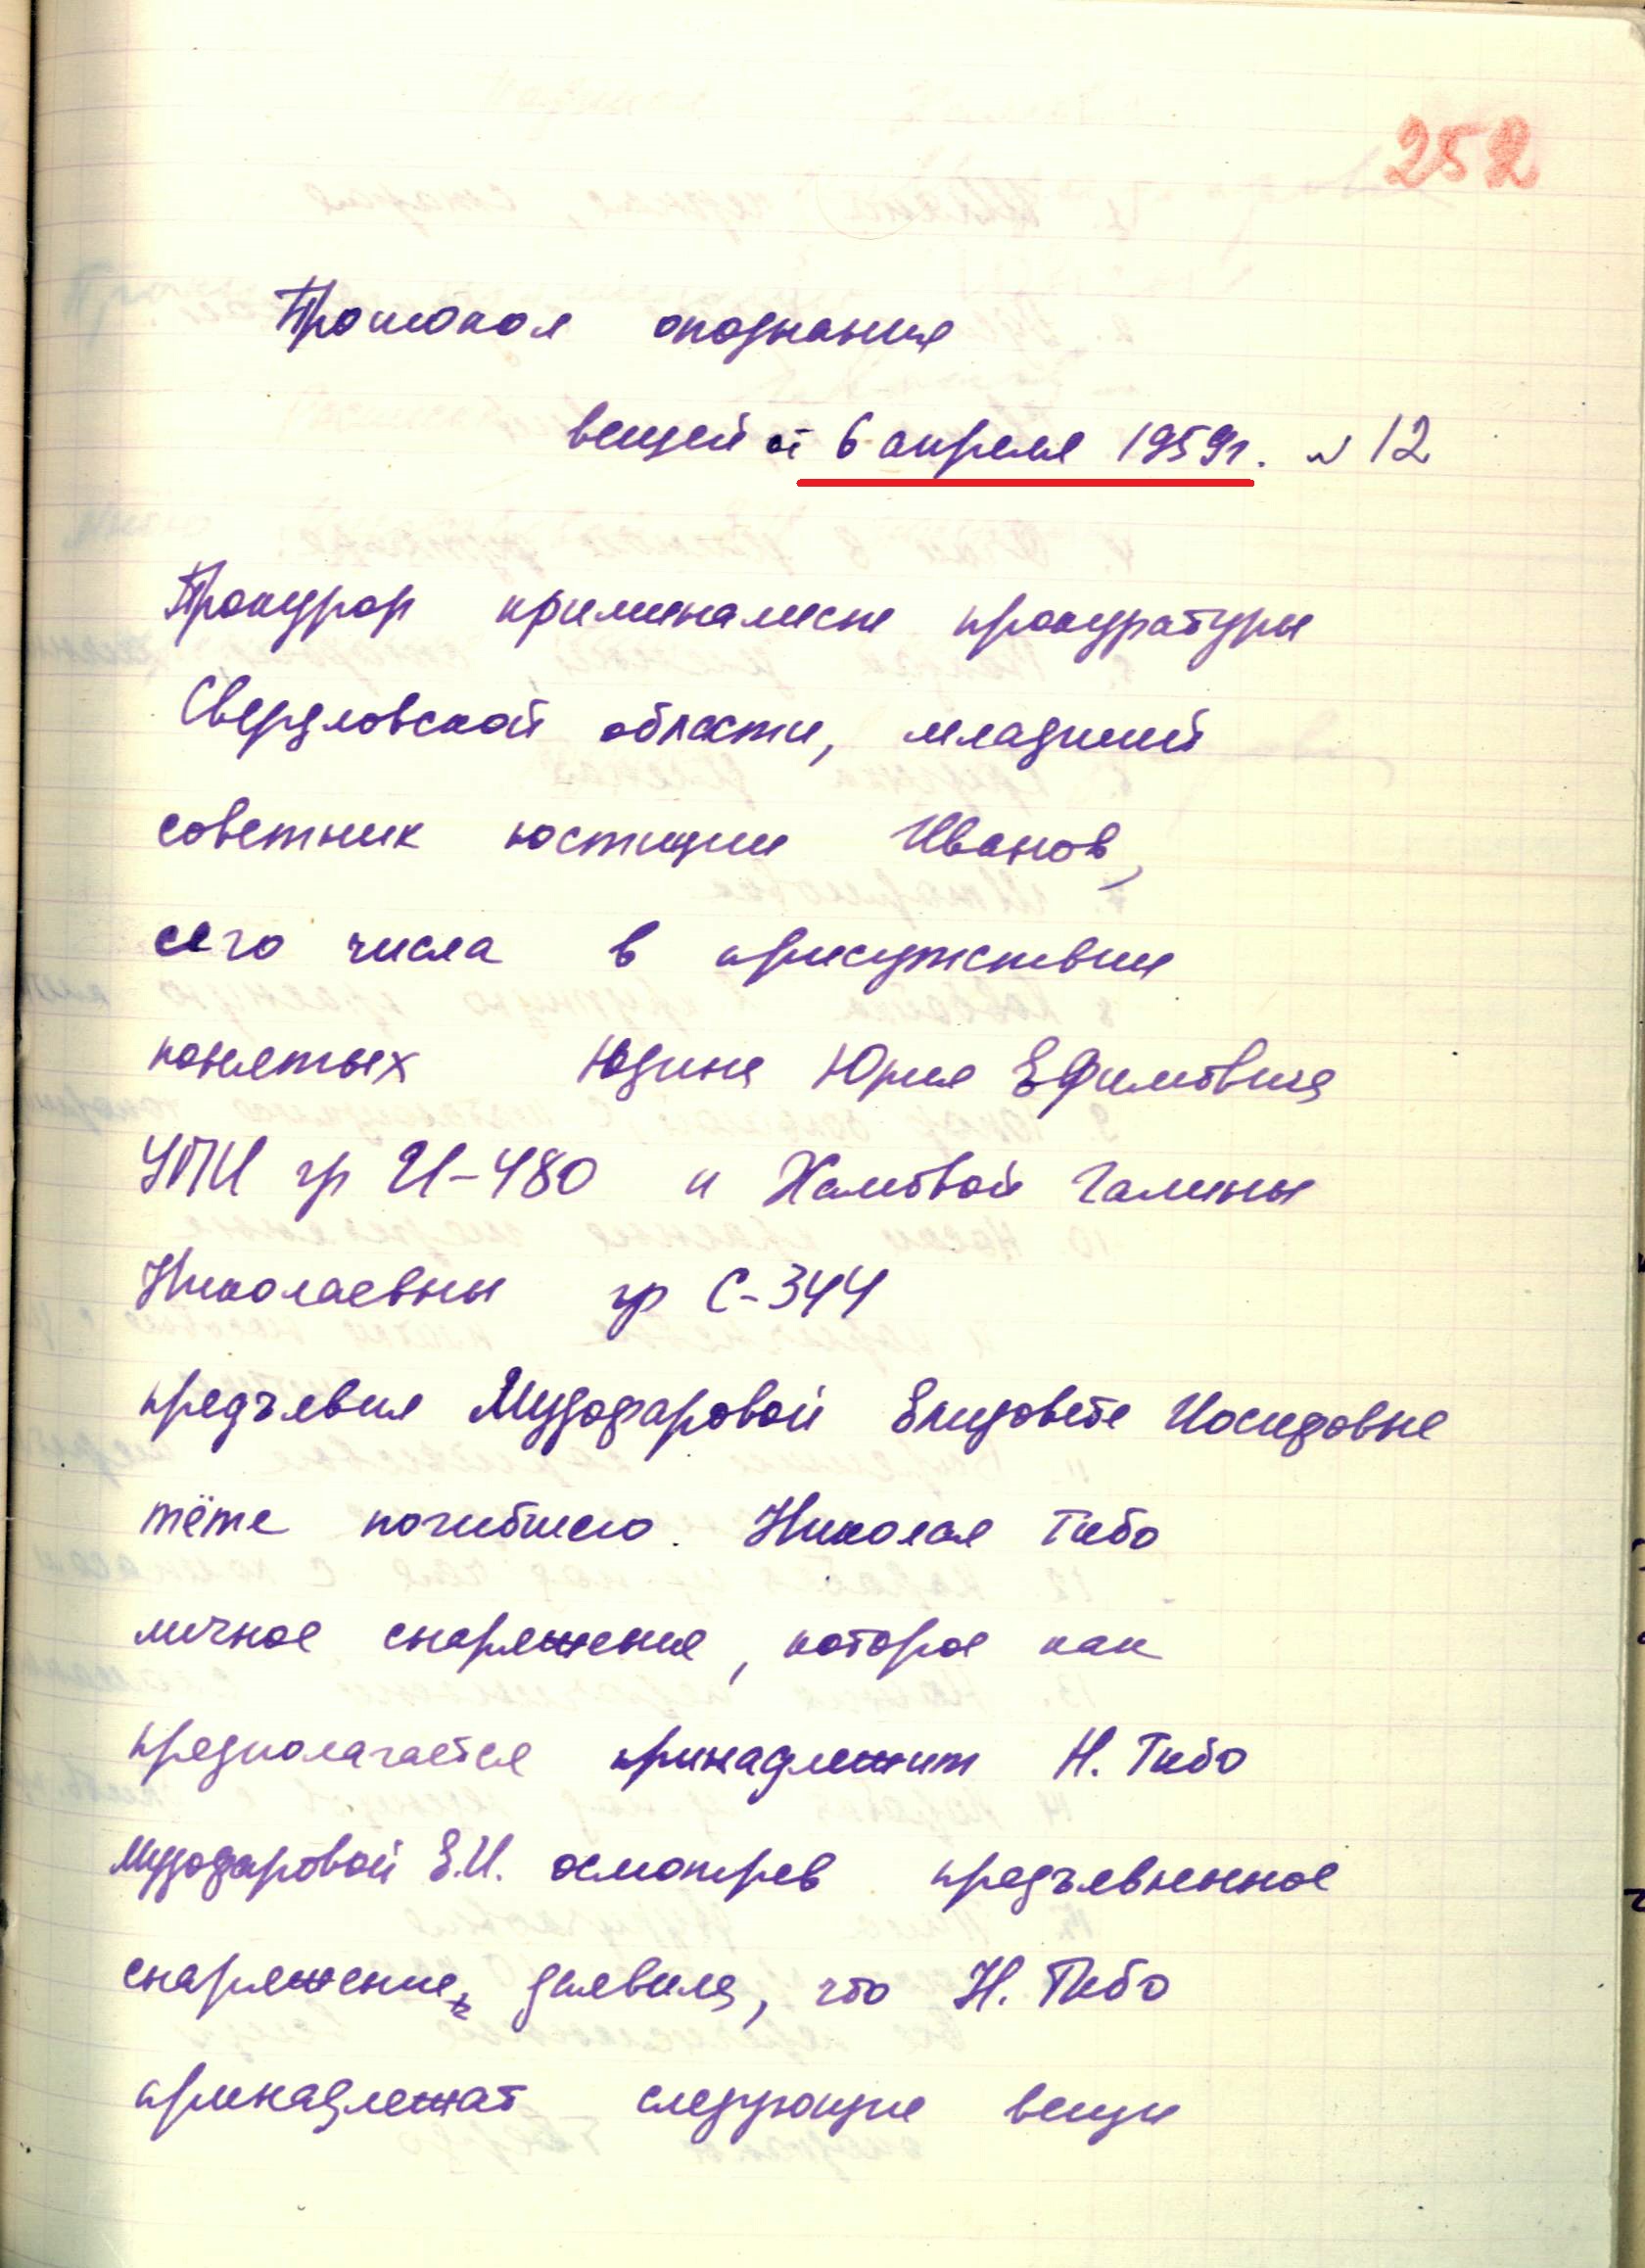 252
Протокол опознания
вещей от 6 апреля 1959г. N 12
Прокурор криминалист прокуратуры
Свердловской области, младший
советник юстиции Иванов,
сего числа в присутствии
понятых Юдина Юрия Ефимовича
УПИ гр И-480 и Хамовой Галины
Николаевны гр С-344
предъявил Музафаровой Елизовете Иосифовне
тёте погибшего. Николая Тибо
личное снаряжение, которое как
предполагается принадлежит Н. Тибо
Музафаровой Е.И. осмотрев предъявленное
снаряжение, заявила, что Н. Тибо
принадлежат следующие вещи